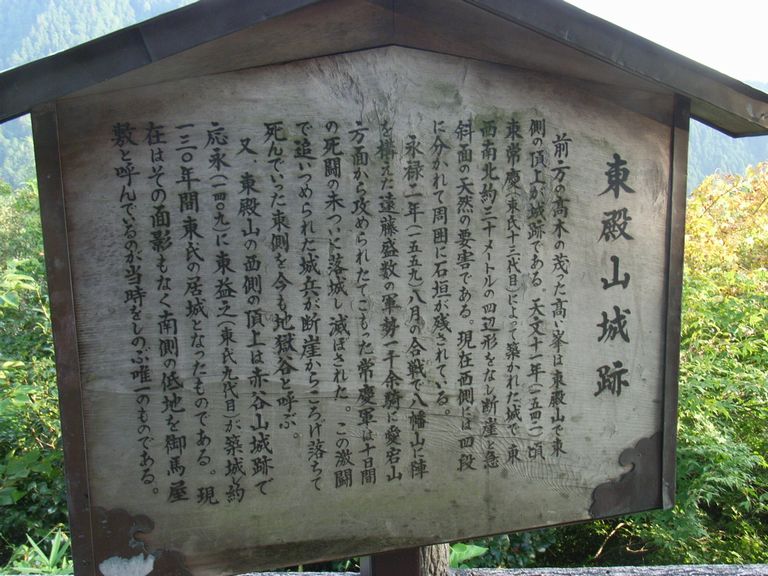 東殿山城跡
前方の高木の茂った高い峯は東殿山で東
側の頂上が城跡である。天文十一年(一五四一)頃
東常慶(東氏十三代目)によって築かれた城で、東
西南北約三十メートルの四辺形をなし断崖と急
斜面の天然の要害である。現在西側には四段
に分かれて周囲に石垣が残されている。
永禄二年(一五五九)八月の合戦で八幡山に陣
を構えた遠藤盛数の軍勢一千余騎に愛宕山
方面から攻められたてこもった常慶軍は十日間
の死闘の末ついに落城し滅ぼされた。この激闘
で追いつめられた城兵が断崖からころげ落ちて
死んでいった東側を今も地獄谷と呼ぶ。
又、東殿山の西側の頂上は赤谷山城跡で
応永(一四〇九)に東益之(東氏九代目)が築城し約
一三〇年間東氏の居城となったものである。現
在はその面影もなく南側の低地を御馬屋
敷と呼んでいるのが当時をしのぶ唯一のものである。